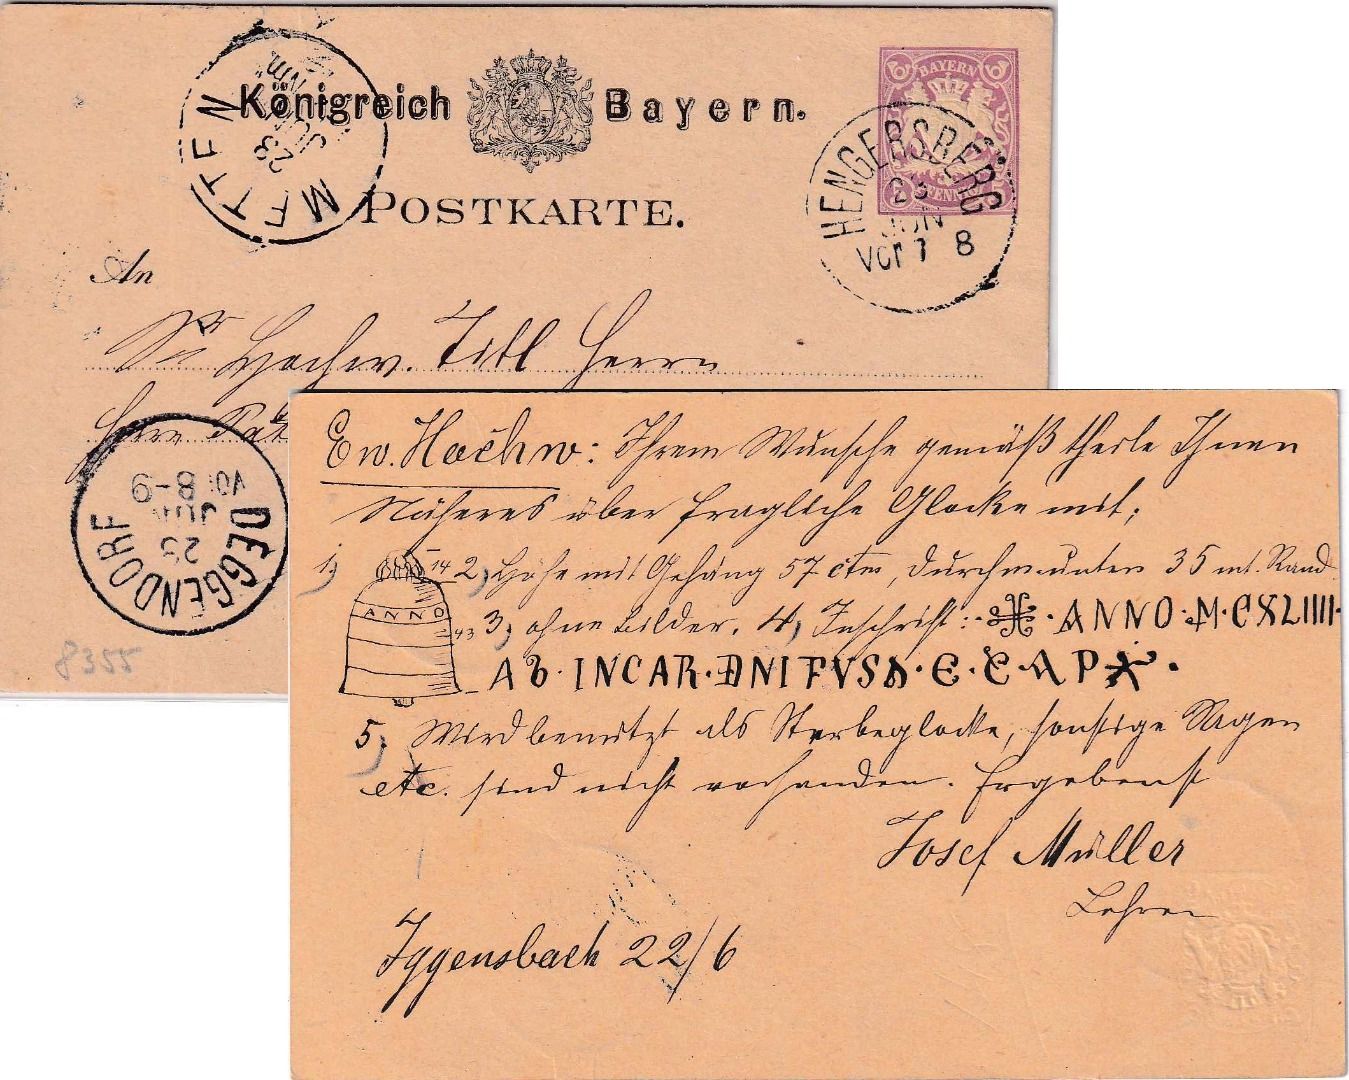 Königreich Bayern.
BAYERN
PFENNIG
POSTKARTE.
METTEN
23
JUN
HENGERSBERG
23
JUN
Vor 7 8
An
Sr Hochw. Titl Herrn
Herrn Pat
DEGGENDORF
25
JUN
VOR 8-9
8355
Ew. Hochw: Ihrem Wunsche gemäß theile Ihnen
Näheres über fragliche Glocke mit;
1) 14 2) Höhe mit Gehäng 57 ctm, Durchm unten 35 mt. Rand
ANNO
43 3) ohne Bilder. 4) Inschrift: · ANNO · M · CXLIIII ·
AB · INCAR · DNI FVSA · E · C · A P ·
5) Wird benützt als Sterbeglocke, sonstige Sagen
etc. sind nicht vorhanden. Ergebenst
Josef Müller
Lehrer
Iggensbach 22/6